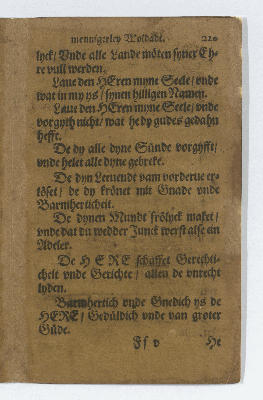 mennigerley Woldadt. 220
lyck/ Vnde alle Lande möten syner Eh-
re vull werden.
Laue den HEren myne Seele/ vnde
wat in my ys/ synen hilligen Namen.
Laue den HEren myne Seele/ vnde
vorgyth nicht/ wat he dy gudes gedahn
hefft.
De dy alle dyne Sünde vorgyfft/
vnde helet alle dyne gebreke.
De dyn Leuendt vam vorderue er-
löset/ de dy krönet mit Gnade vnde
Barmherticheit.
De dynen Mundt frölyck maket/
vnde dat du wedder Junck werst alse ein
Adeler.
De HERE schaffet Gerechti-
cheit vnde Gerichte/ allen de vnrecht
lyden.
Barmhertich vnde Gnedich ys de
HERE/ Gedüldich vnde van groter
Güde.
Ff v He